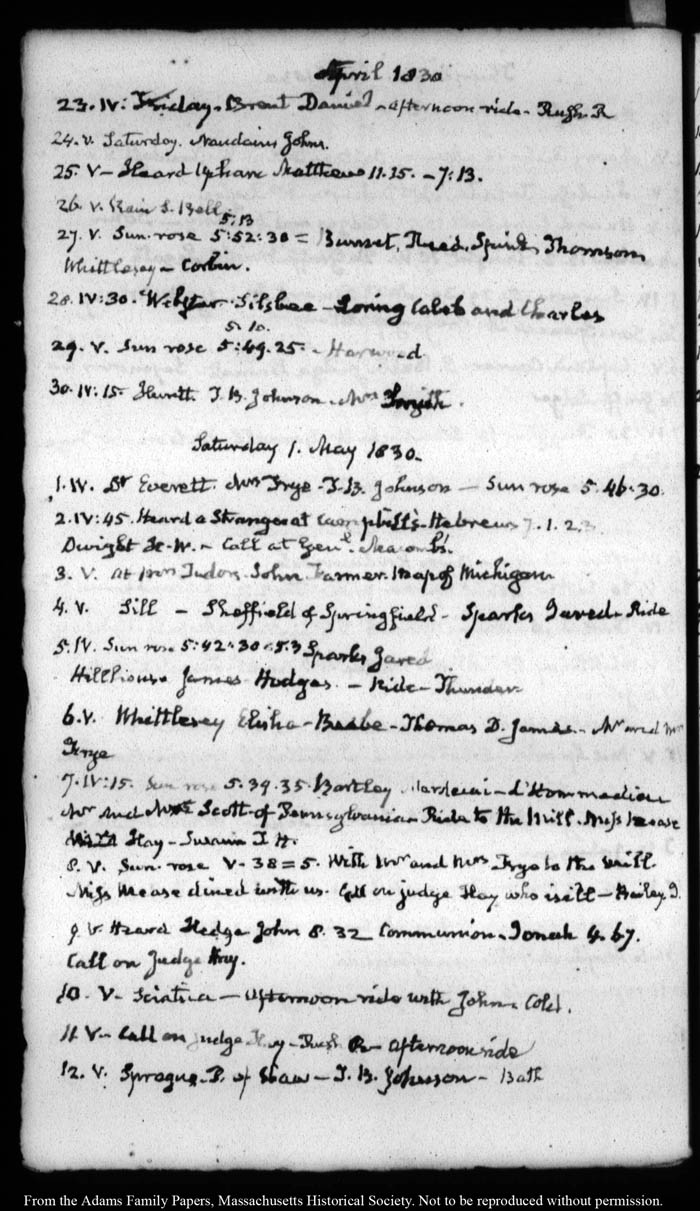 April 1830
23. IV: Friday. Brent Daniel - afternoon ride. Rush. R
24. V. Saturday. Naudain John.
25. V - Heard Upham Matthew 11. 15. - 7: 13.
26. V. Bain S. Bell
5:13
27. V. Sun rose 5:52:30 = Burnet, Thomson
Whittlesey - Corbin.
28. IV:30. Webster. Silsbee - Loring Caleb and Charles
5. 10.
29. V. Sun rose 5:49.25. - Harwood
30. IV:15. T. B. Johnson. Mrs Smith.
Saturday 1. May 1830.
1. IV. Dr Everett. Mrs Frye - T. B. Johnson - Sun rose 5. 46. 30.
2. IV:45. Heard a Stranger at Campbell's - Hebrews 7. 1. 2. 3.
Dwight H. W. - Call at Genl. Macomb's.
3. V. at Mrs Tudor's. John Farmer. Map of Michigan
4. V. Sill - Sheffield of Springfield - Sparks Jared - Ride
5. IV. Sun rose 5:42:30 = 5.3 Sparks Jared
Hillhouse James - Hodges. - Ride - Thunder.
6. V. Whittlesey Elisha - Beebe - Thomas D. James. - Mr and Mrs
Frye
7. IV:15. Sun rose 5. 39. 35. Bartley Mordecai - d'Hommedieu
Mr and Mrs Scott of Pennsylvania - Ride to the Mill. Miss Mease
Hay - Swain T. H.
8. V. Sun. rose V - 38 = 5. With Mr and Mrs Frye to the Mill.
Miss Mease dined with us. Call on judge Hay who is ill - Bailey J.
9. V. Heard Hedge John 8. 32 Communion. Jonah 4. 6 7.
Call on Judge Hay.
10. V. Sciatica - afternoon ride with John. Cold.
11 V - Call on judge Hay - Rush R - afternoon ride
12. V. Sprague. P. of Shaw - T. B. Johnson - Bath
From the Adams Family Papers, Massachusetts Historical Society. Not to be reproduced without permission.